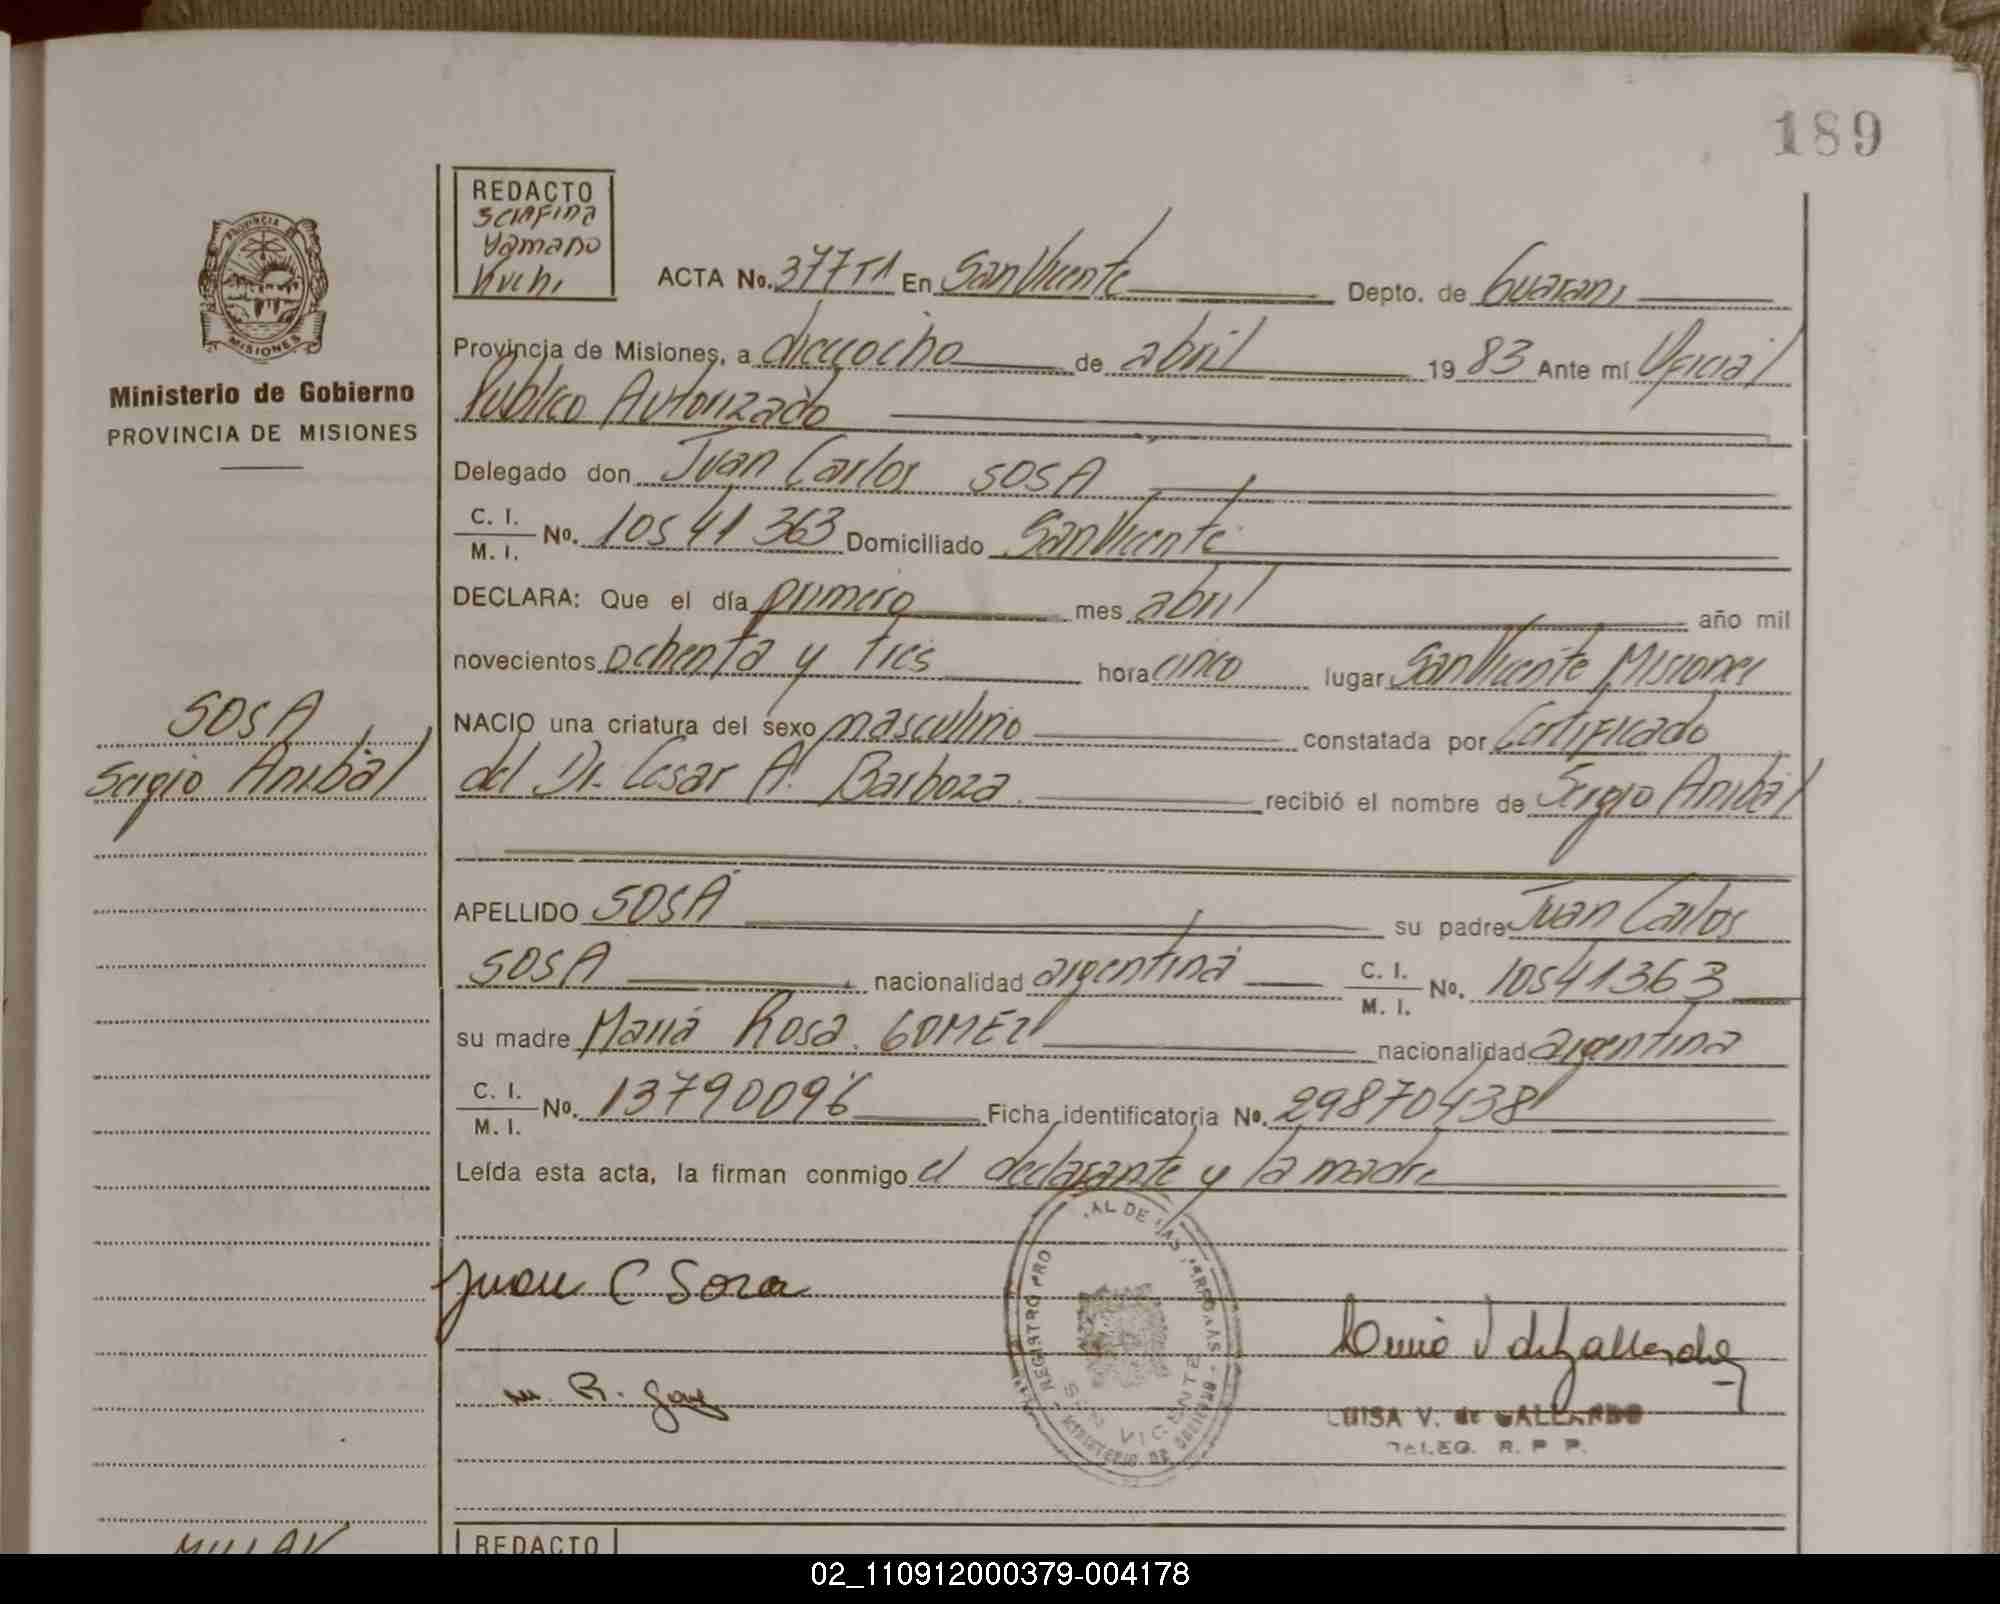 189
REDACTO
Yamano
PROVINCIA
MISIONES
Ministerio de Gobierno
PROVINCIA DE MISIONES
ACTA No. 377 T1 En San Vicente Depto. de Guarani
Provincia de Misiones, a dieciocho de abril 1983 Ante mí Oficial
Publico Autorizado
Delegado don Juan Carlos SOSA
C. I.
M. I. No. 10541363 Domiciliado San Vicente
DECLARA: Que el día primero mes abril año mil
novecientos ochenta y tres hora cinco lugar San Vicente Misiones
SOSA
Sergio Anibal
NACIO una criatura del sexo masculino constatada por Certificado
del Dr. Cesar A. Barboza recibió el nombre de Sergio Anibal
APELLIDO SOSA su padre Juan Carlos
SOSA nacionalidad argentina C. I. M. I. No. 10541363
su madre Maria Rosa GOMEZ nacionalidad argentina
C. I.
M. I. No. 13790096 Ficha identificatoria No. 29870438
Leída esta acta, la firman conmigo el declarante y la madre
Juan C Sosa
m. R. Gomez
REGISTRO PRO AL DE LAS PERSONAS
SAN VICENTE
MINISTERIO DE GOBIERNO
LUISA V. de GALLARDO
DELEG. R. P. P.
REDACTO
02_110912000379-004178